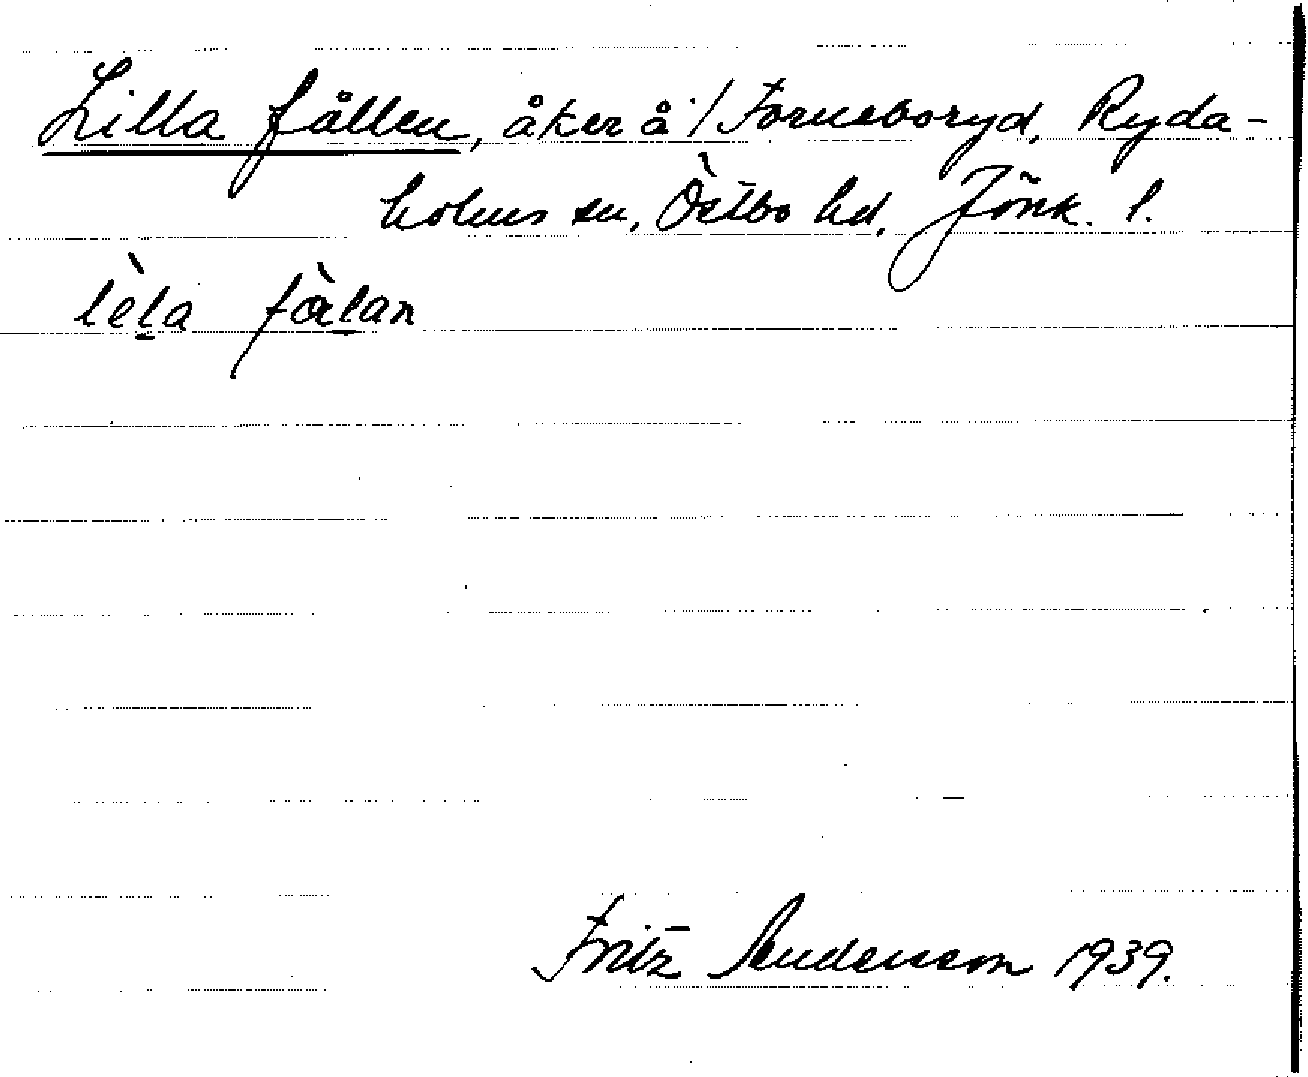 Lilla fållen, åker å 1/ Forneboryd, Ryda-
holms sn, Östbo hd, Jönk. l.
lèl̲a fàl̲an
Fritz Andersson 1939.